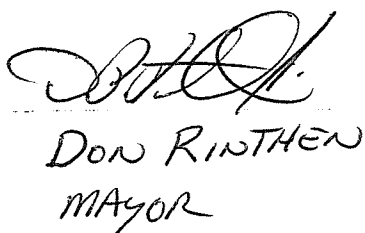 DON RINTHEN
MAYOR